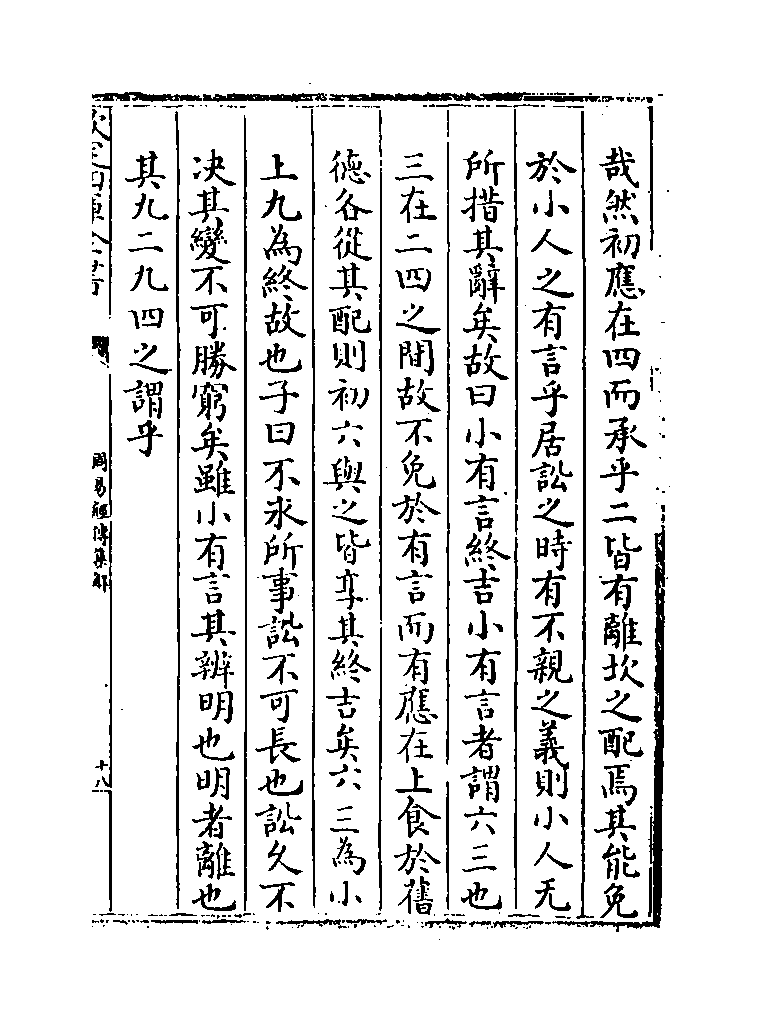 哉然初應在四而承乎二皆有離坎之配焉其能免
於小人之有言乎居訟之時有不親之義則小人无
所措其辭矣故曰小有言終吉小有言者謂六三也
三在二四之間故不免於有言而有應在上食於舊
德各從其配則初六與之皆享其終吉矣六三為小
上九為終故也子曰不求所事訟不可長也訟久不
决其變不可勝窮矣雖小有言其辨明也明者離也
其九二九四之謂乎
欽定四庫全書
周易經傳集解
十八